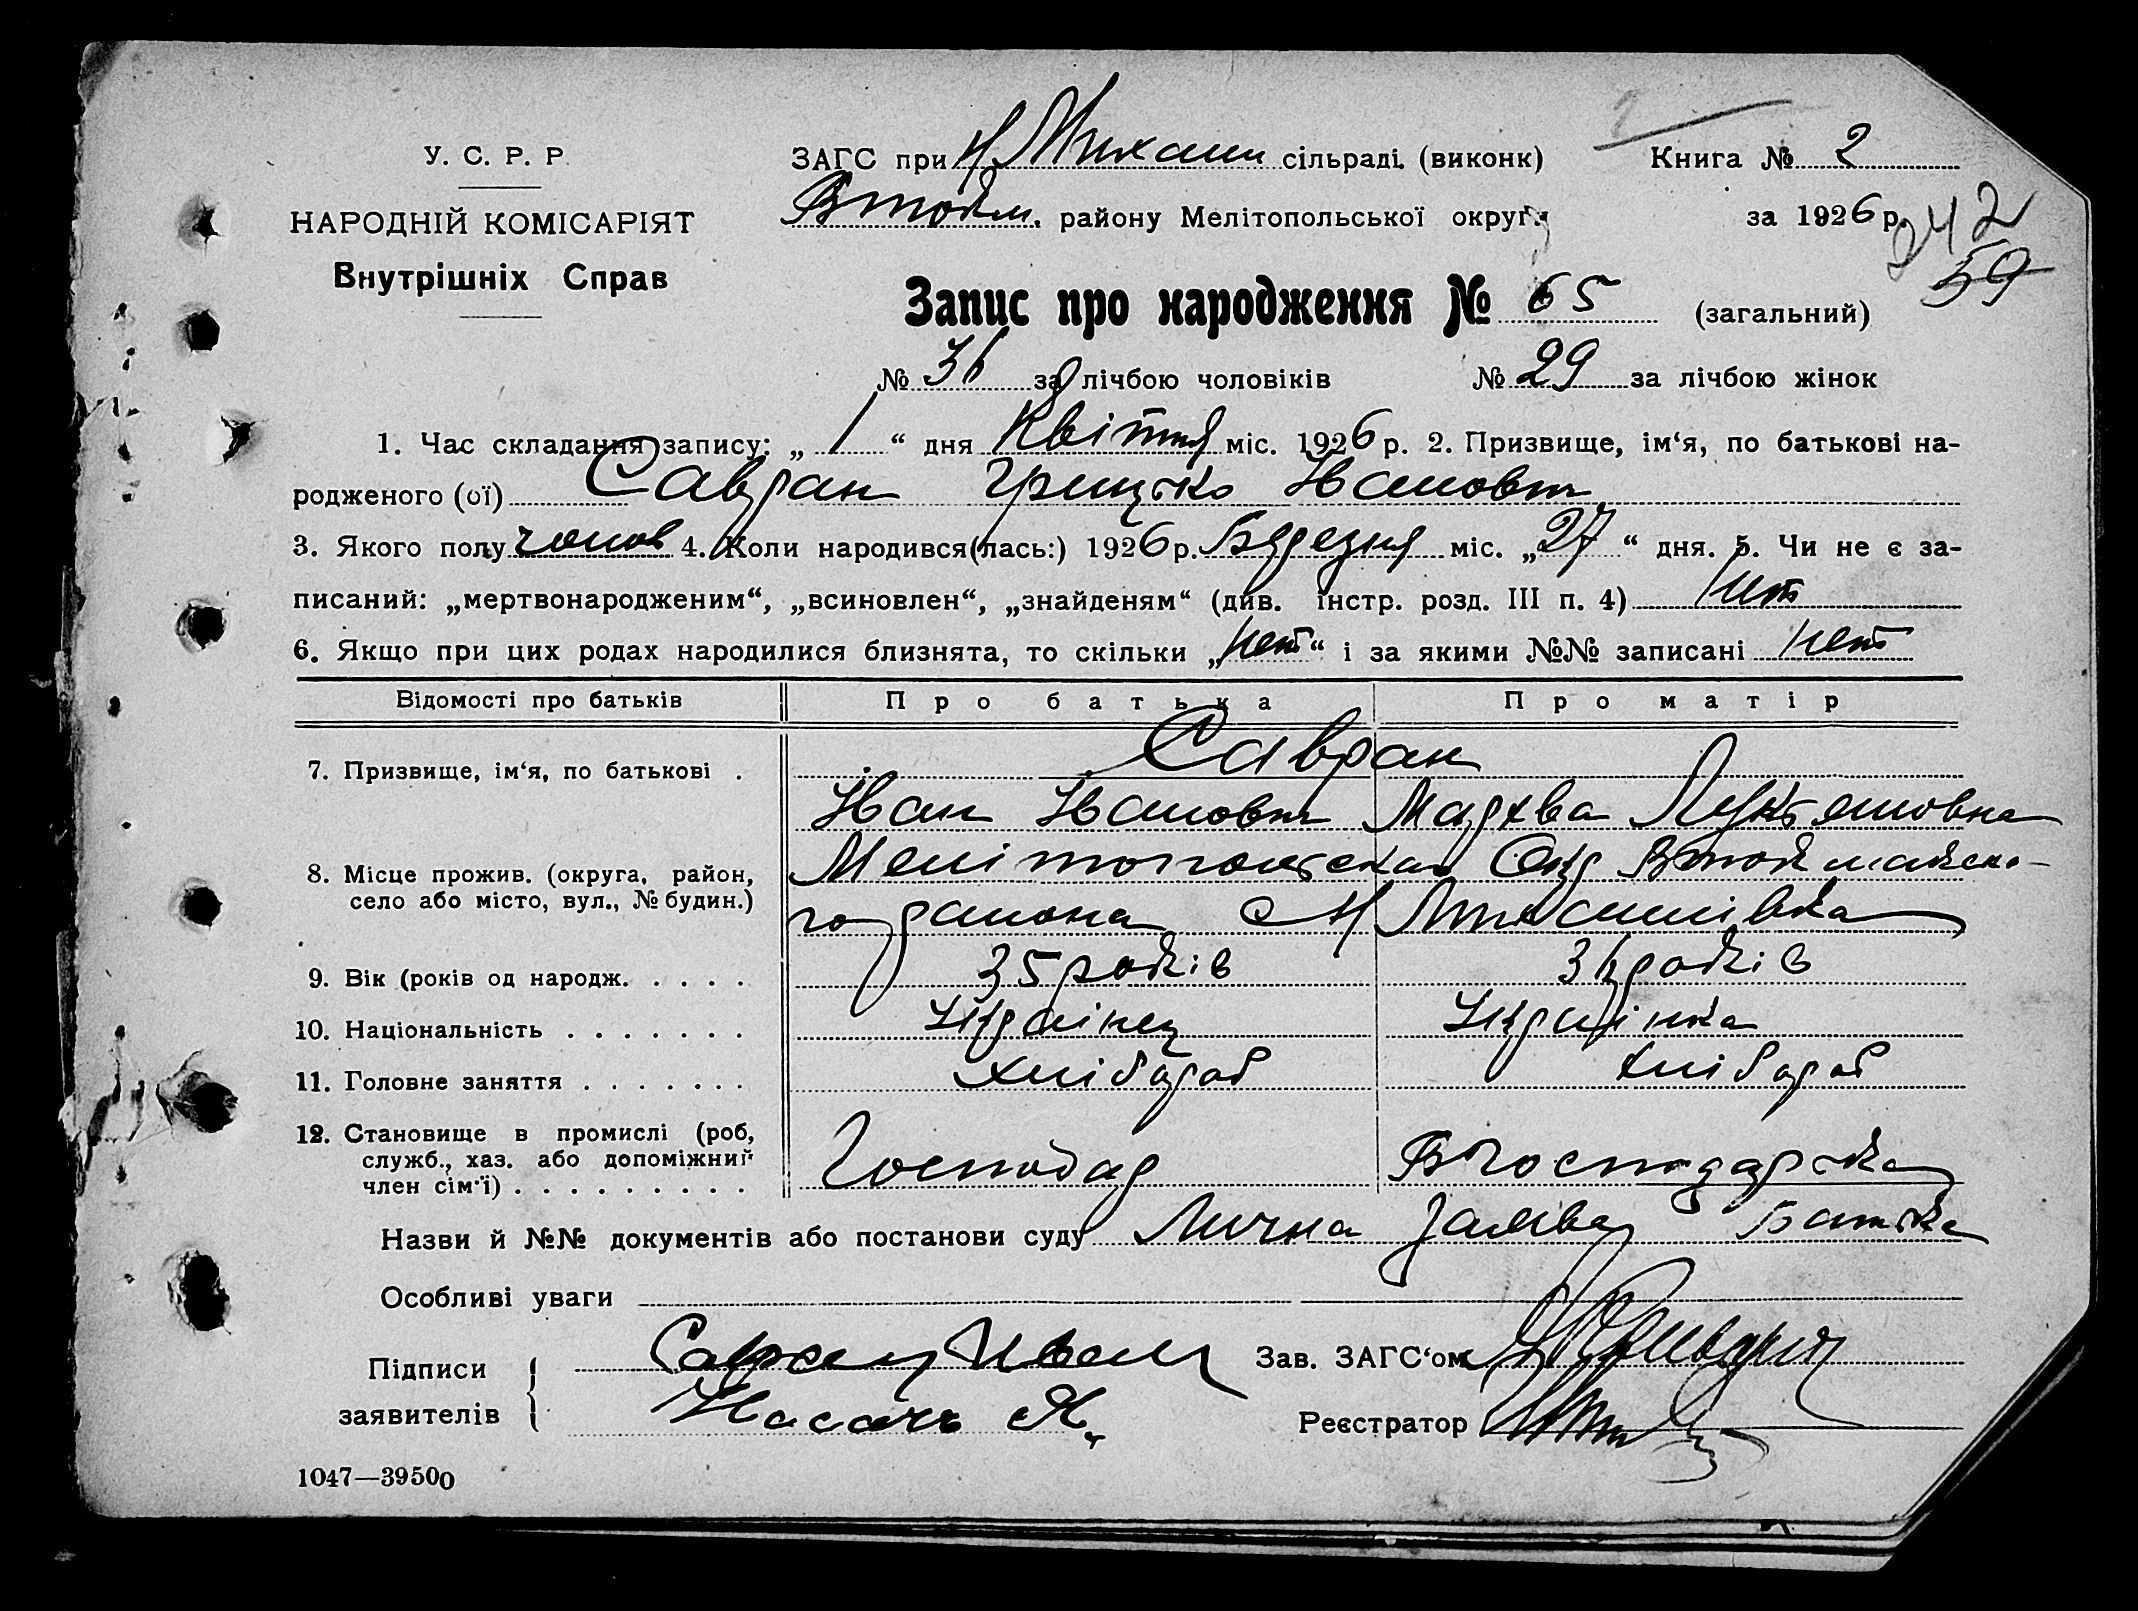 У. С. Р. Р.
НАРОДНІЙ КОМІСАРІЯТ
Внутрішніх Справ
ЗАГС при Н Михайлі сільраді (виконк)
Втокм. району Мелітопольської округи
Книга № 2
за 1926 р.
242
59
Запис про народження № 65 (загальний)
№ 36 за лічбою чоловіків № 29 за лічбою жінок
1. Час складання запису: „ 1 “ дня Квітня міс. 1926 р. 2. Призвище, ім‘я, по батькові на-
родженого (ої) Савран Грицько Иванович
3. Якого полу чолов 4. Коли народився(лась:) 1926 р. Березня міс. „27“ дня. 5. Чи не є за-
писаний: „мертвонародженим“, „всиновлен“, „знайденям“ (див. інстр. розд. III п. 4) нет
6. Якщо при цих родах народилися близнята, то скільки „нет“ і за якими №№ записані нет
Відомості про батьків Про батька Про матір
7. Призвище, ім‘я, по батькові . Савран
Иван Иванович Лукьяновна
8. Місце прожив. (округа, район, село або місто, вул., № будин.) Мелітопольская Окр Втокмакско-
го района с Н Михайлівка
9. Вік (років од народж. . . . . 35 років 36 років
10. Національність . . . . . . . Українец Українка
11. Головне заняття . . . . . . . хлібороб хлібороб
12. Становище в промислі (роб, служб., хаз. або допоміжний член сім‘ї) . . . . . . . . . Господар Господарка
Назви й №№ документів або постанови суду Лична заява Батька
Особливі уваги
Підписи заявителів { Савран Иван
Зав. ЗАГС‘ом
Носачь
Реєстратор
1047—39500